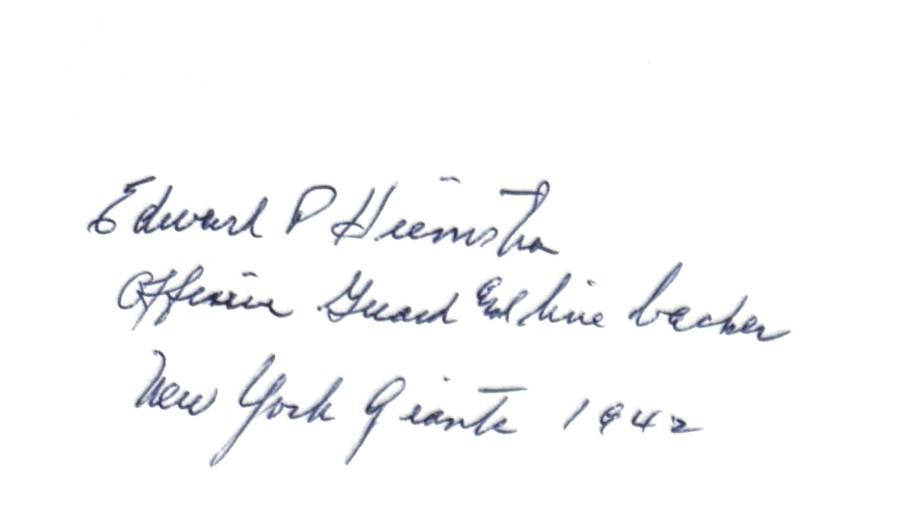 Edward P Hiemstra
Offensive Guard End line backer
New York Giants 1942